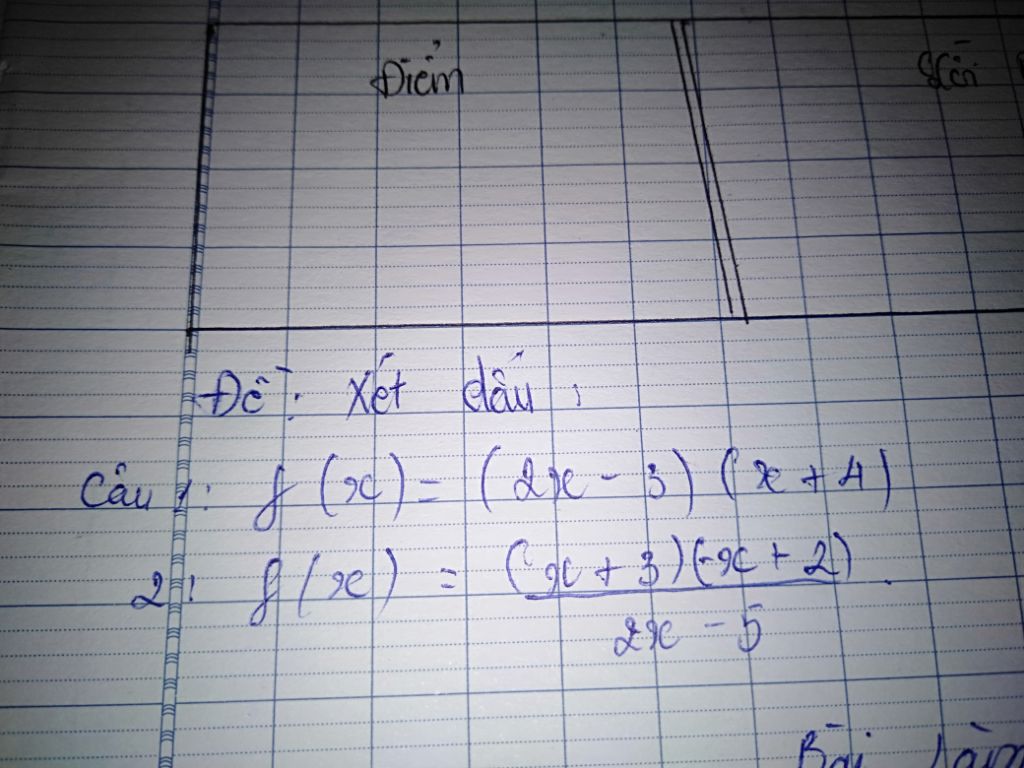 Điểm
Đề: Xét dấu:
Câu 1: f(x) = (2x - 3)(x + 4)
2: f(x) = (x + 3)(-x + 2)
2x - 5
Bài làm